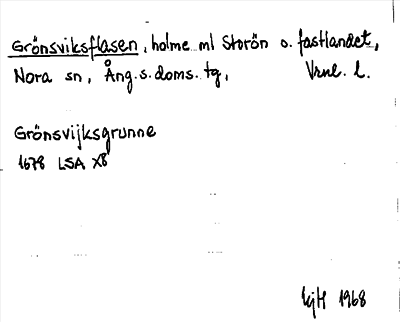 Grönsviksflasen, holme ml Storön o. fastlandet,
Nora sn, Ång.s.doms.tg, Vrnl. l.
Grönsvijksgrunne
1678 LSA X8
1968